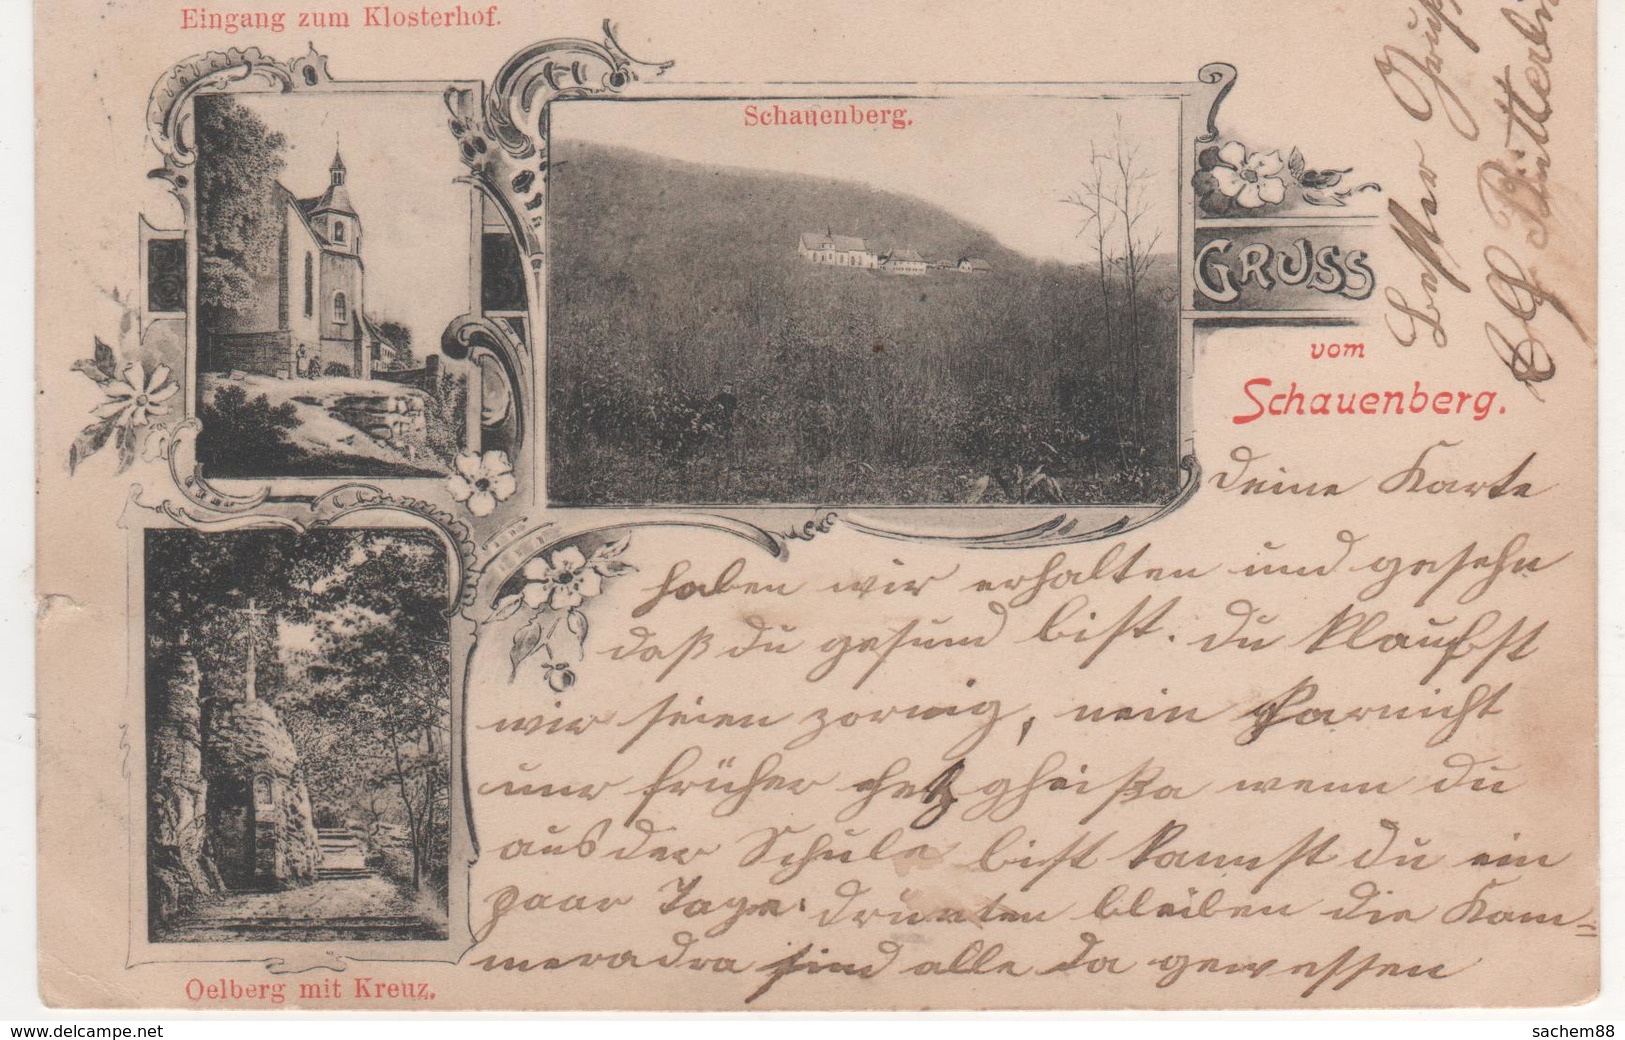 Eingang zum Klosterhof.
Schauenberg.
GRUSS
vom
Schauenberg.
Bester Gruß
Deine Karte
haben wir erhalten und gesehn
daß du gesund bist. Du klaubst
wir seien zornig, nein garnicht
nur früher wenn du
aus der Schule bist kannst du ein
paar Tage drunten bleiben die Kam=
meradra sind alle da gewessen
Oelberg mit Kreuz.
www.delcampe.net
sachem88